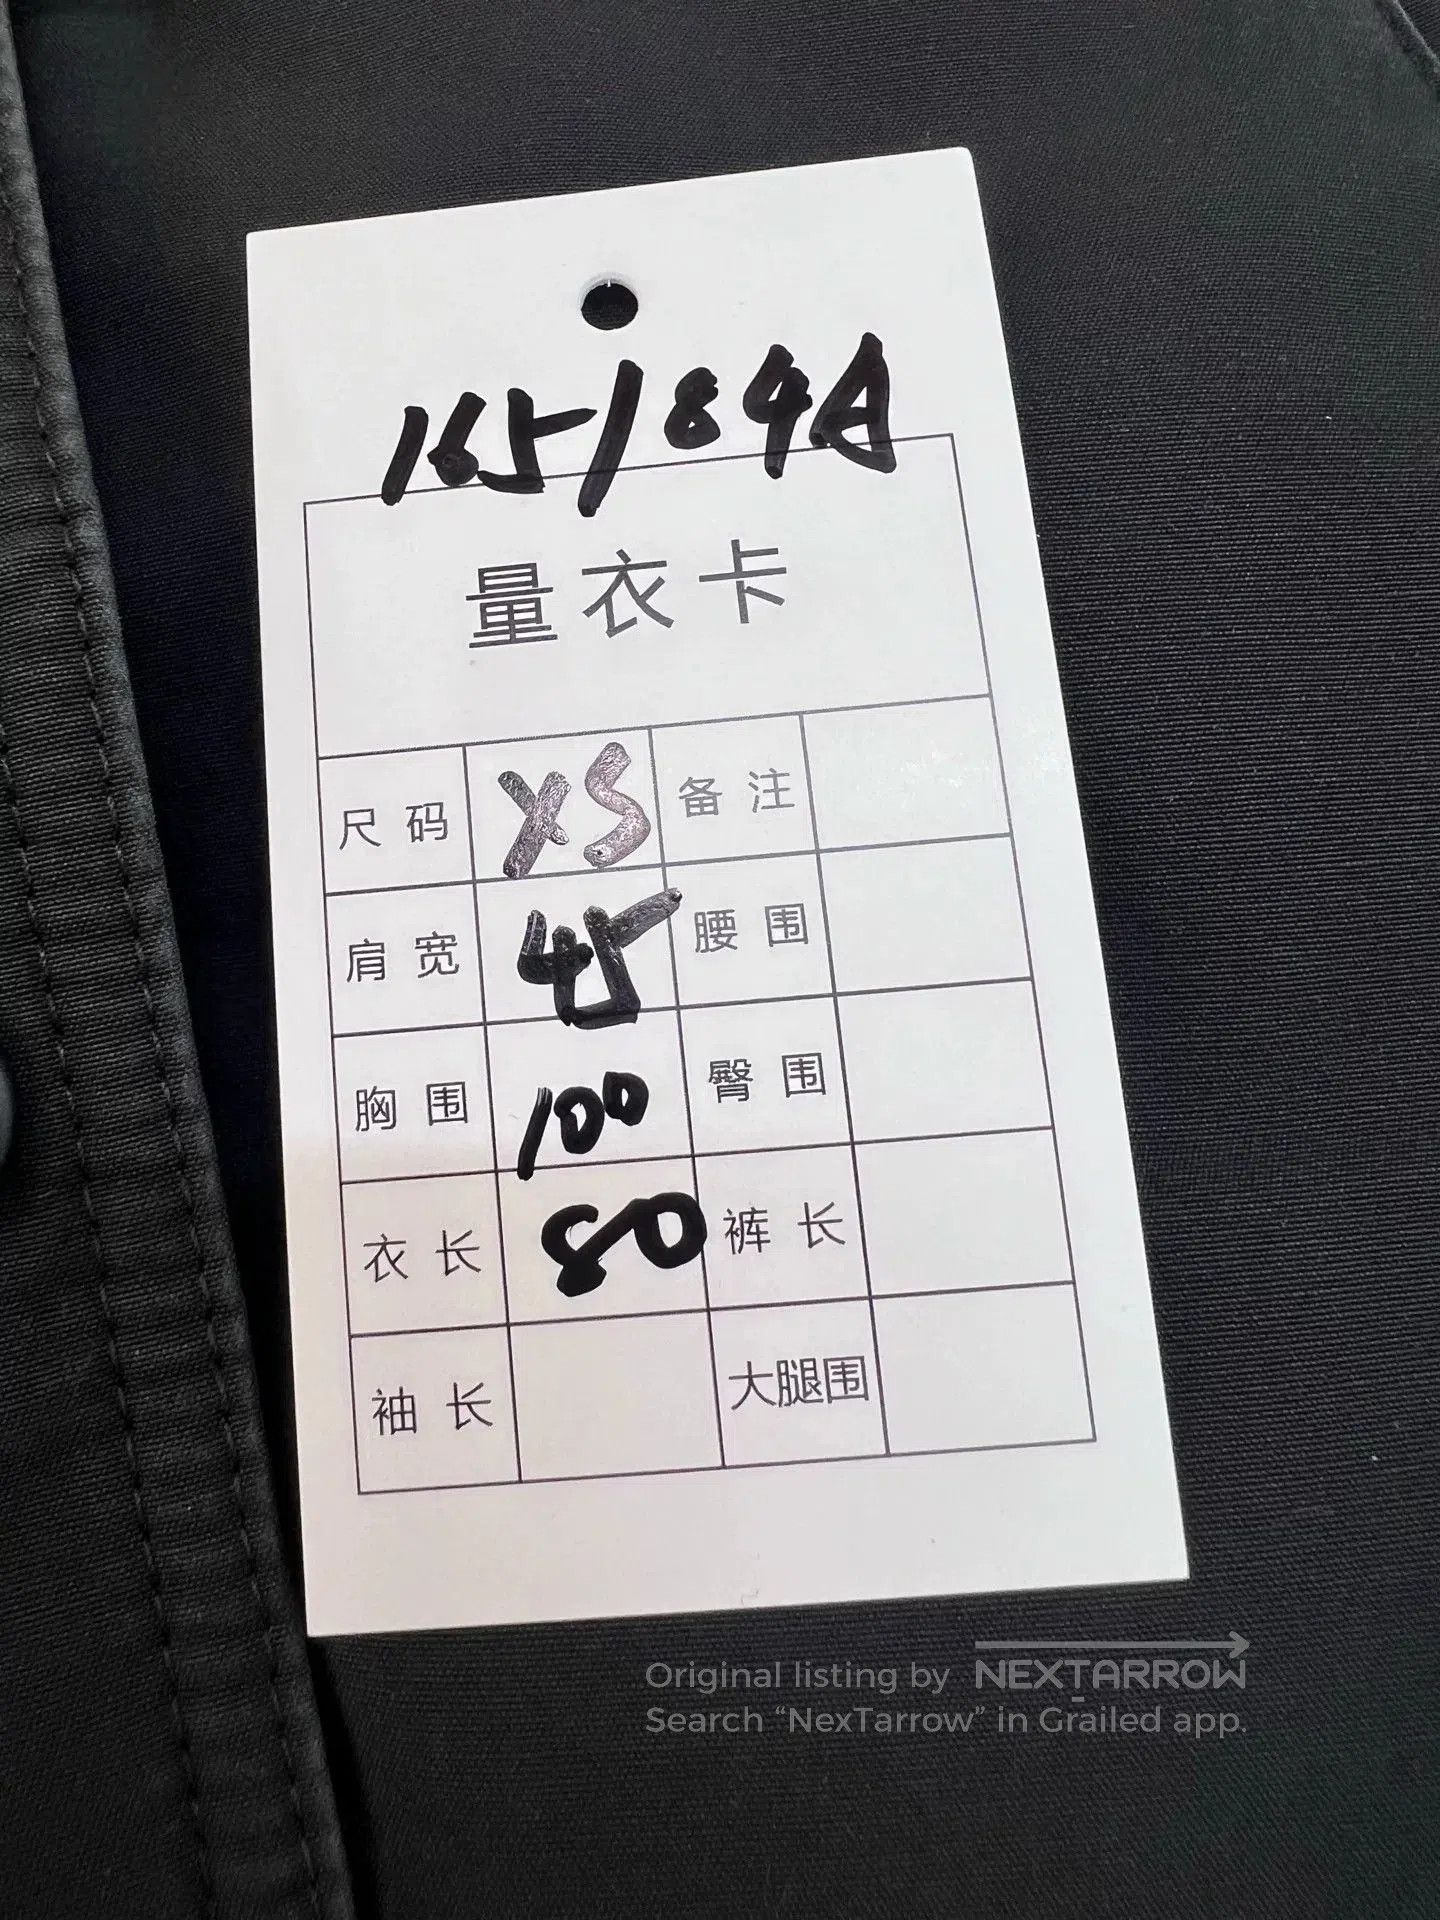 165/84A
量衣卡
尺码 XS 备注
肩宽 45 腰围
胸围 100 臀围
衣长 80 裤长
袖长 大腿围
Original listing by NEXTARROW
Search “NexTarrow” in Grailed app.